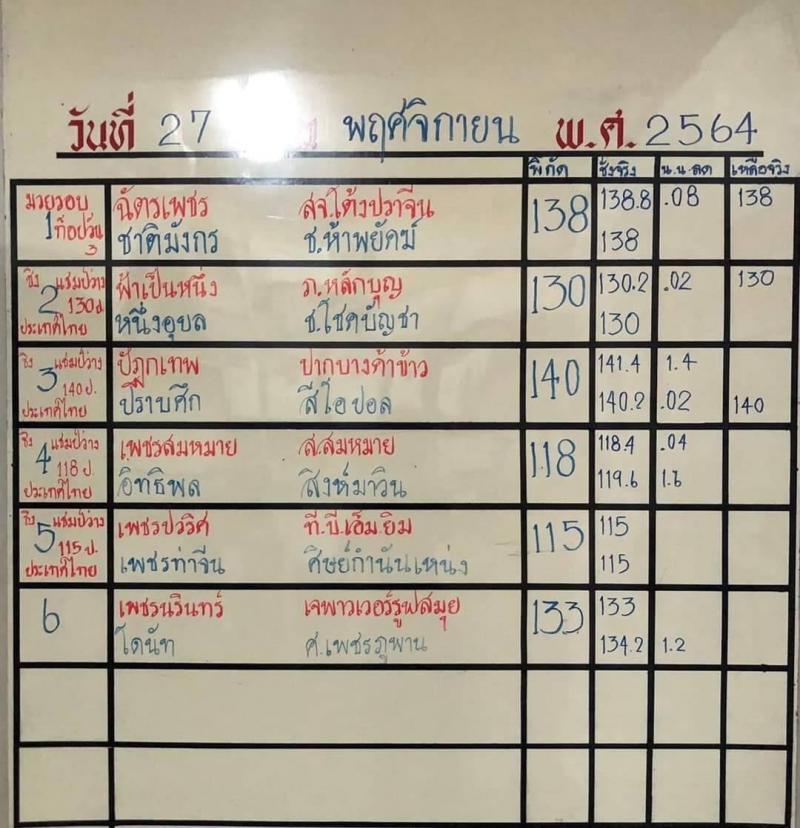 วันที่ 27 พฤศจิกายน พ.ศ. 2564
พิกัด ชั่งจริง น.น.ลด เหลือจริง
มวยรอบ ฉัตรเพชร สจ.โต้งปราจีน 138 138.8 .08 138
1 ท็อปวัน 3 ชาติมังกร ช.ห้าพยัคฆ์ 138
ชิง แชมป์ว่าง ฟ้าเป็นหนึ่ง ภ.หลักบุญ 130 130.2 .02 130
2 130ป.
ประเทศไทย หนึ่งอุบล ช.โชคบัญชา 130
ชิง แชมป์ว่าง ปัฎกเทพ ปากบางค้าข้าว 140 141.4 1.4
3 140ป.
ประเทศไทย ปราบศึก สีโอปอล 140.2 .02 140
ชิง แชมป์ว่าง เพชรสมหมาย ส.สมหมาย 118 118.4 .04
4 118ป.
ประเทศไทย อิทธิพล สิงห์มาวิน 119.6 1.6
ชิง แชมป์ว่าง เพชรปวริศ ที.บี.เอ็ม.ยิม 115 115
5 115ป.
ประเทศไทย เพชรท่าจีน ศิษย์กำนันเหน่ง 115
6 เพชรนรินทร์ เจพาวเวอร์รูฟสมุย 133 133
โดนัท ศ.เพชรภูพาน 134.2 1.2